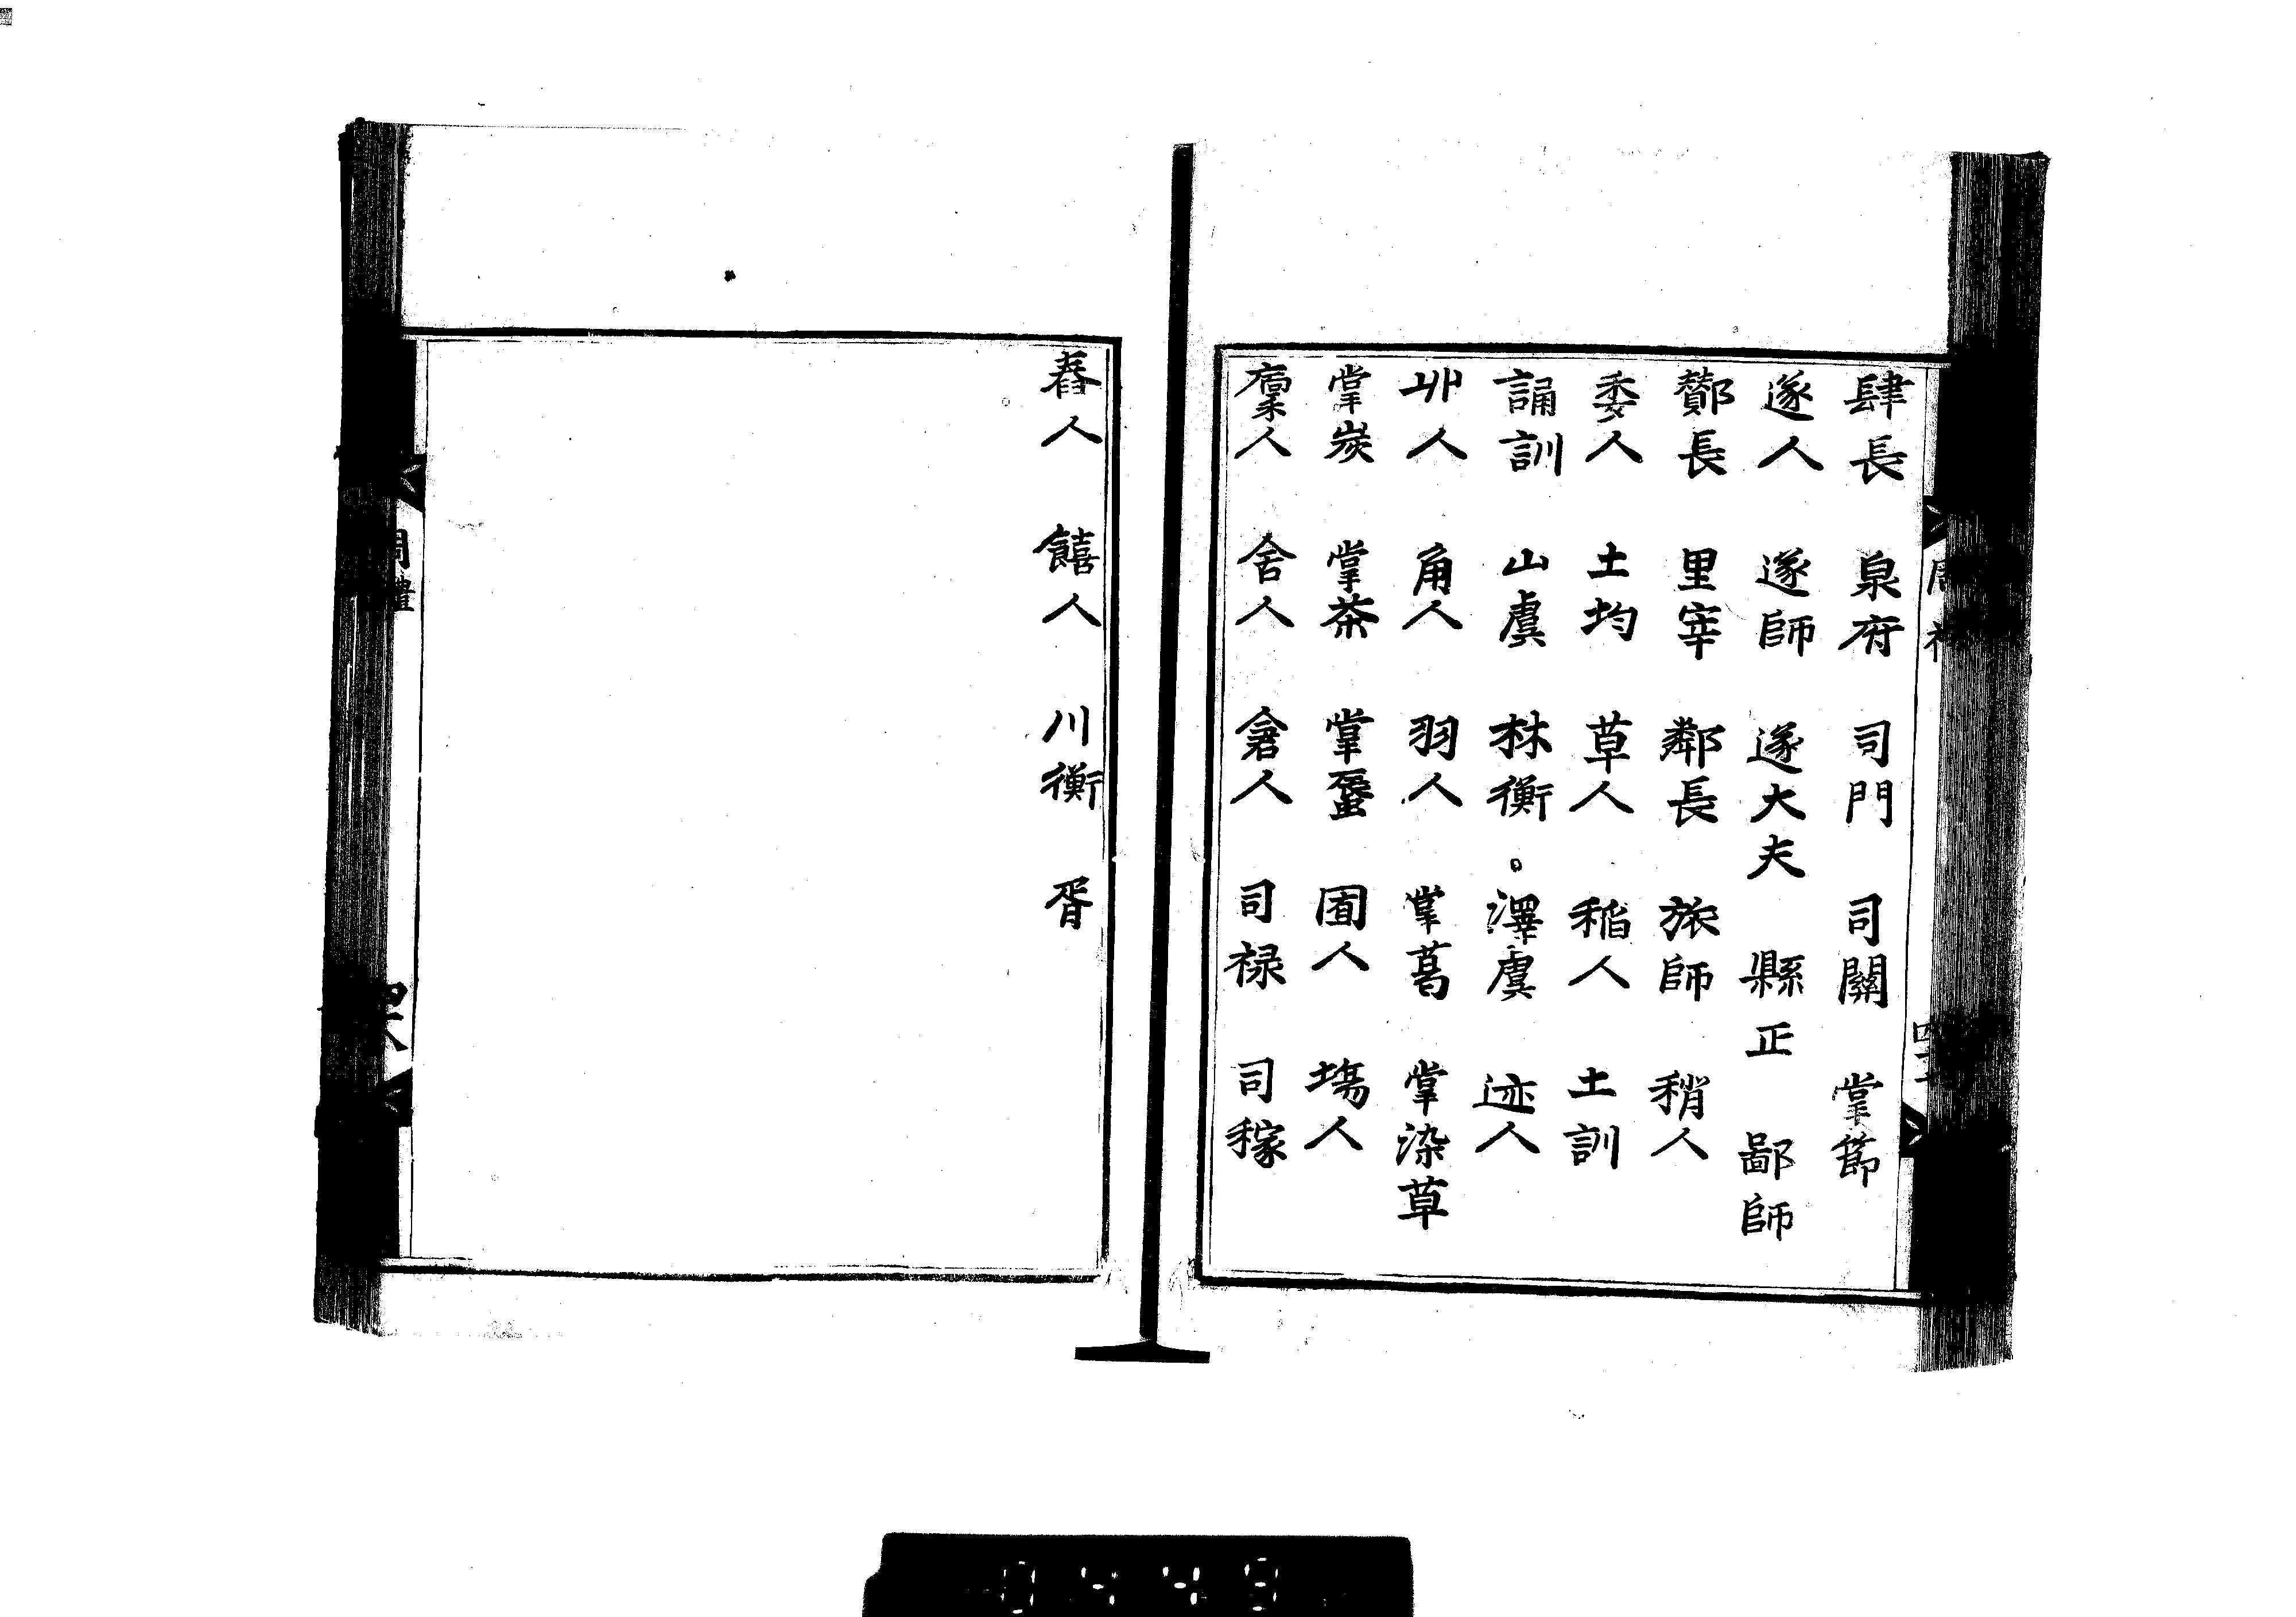 肆長 泉府 司門 司關 掌節
遂人 遂師 遂大夫 縣正 鄙師
酇長 里宰 鄰長 旅師 稍人
委人 土均 草人 稻人 土訓
誦訓 山虞 林衡 澤虞 迹人
丱人 角人 羽人 掌葛 掌染草
掌炭 掌荼 掌蜃 囿人 場人
廩人 舍人 倉人 司祿 司稼
舂人 饎人 川衡 胥
周禮